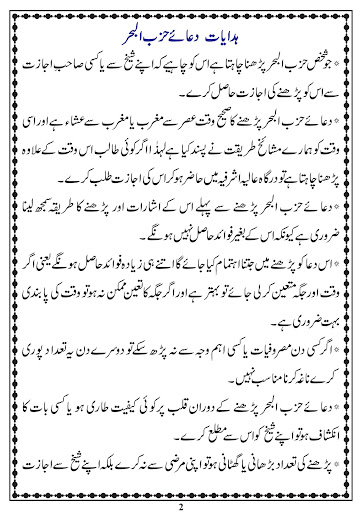 ہدایات دعائے حزب البحر
* جو شخص حزب البحر پڑھنا چاہتا ہے اس کو چاہیے کہ اپنے شیخ سے یا کسی صاحب اجازت
سے اس کو پڑھنے کی اجازت حاصل کرے۔
* دعائے حزب البحر پڑھنے کا صحیح وقت عصر سے مغرب یا مغرب سے عشاء ہے اور اسی
وقت کو ہمارے مشائخ طریقت نے پسند کیا ہے لہذٰا اگر کوئی طالب اس وقت کے علاوہ
پڑھنا چاہتا ہے تو درگاہ عالیہ اشرفیہ میں حاضر ہو کر اس کی اجازت طلب کرے۔
* دعائے حزب البحر پڑھنے سے پہلے اس کے اشارات اور پڑھنے کا طریقہ سمجھ لینا
ضروری ہے کیونکہ اس کے بغیر فوائد حاصل نہیں ہونگے۔
* اس دعا کو پڑھنے میں جتنا اہتمام کیا جائے گا اتنے ہی زیادہ فوائد حاصل ہونگے یعنی اگر
وقت اور جگہ متعین کر لی جائے تو بہتر ہے اور اگر جگہ کا تعین ممکن نہ ہو تو وقت کی پابندی
بہت ضروری ہے۔
* اگر کسی دن مصروفیات یا کسی اہم وجہ سے نہ پڑھ سکے تو دوسرے دن یہ تعداد پوری
کرے ناغہ کرنا مناسب نہیں۔
* دعائے حزب البحر پڑھنے کے دوران قلب پر کوئی کیفیت طاری ہو یا کسی بات کا
انکشاف ہو تو اپنے شیخ کو اس سے مطلع کرے۔
* پڑھنے کی تعداد بڑھانی یا گھٹانی ہو تو اپنی مرضی سے نہ کرے بلکہ اپنے شیخ سے اجازت
2